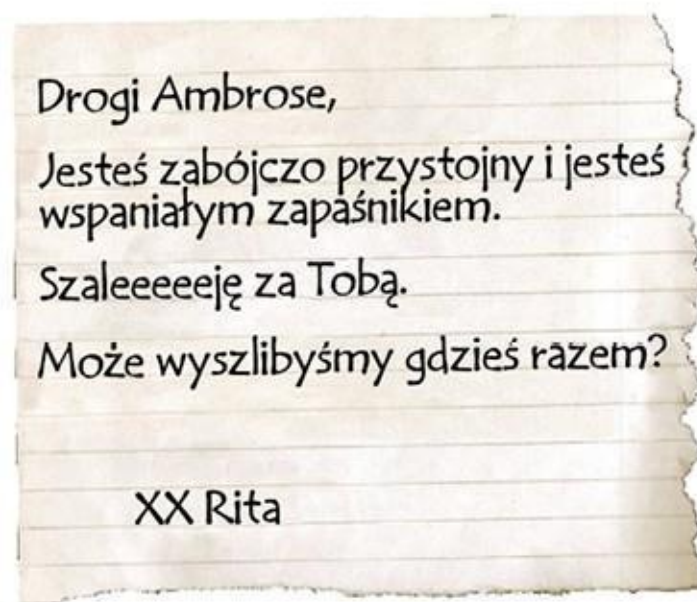 Drogi Ambrose,
Jesteś zabójczo przystojny i jesteś
wspaniałym zapaśnikiem.
Szaleeeeeeję za Tobą.
Może wyszlibyśmy gdzieś razem?
XX Rita